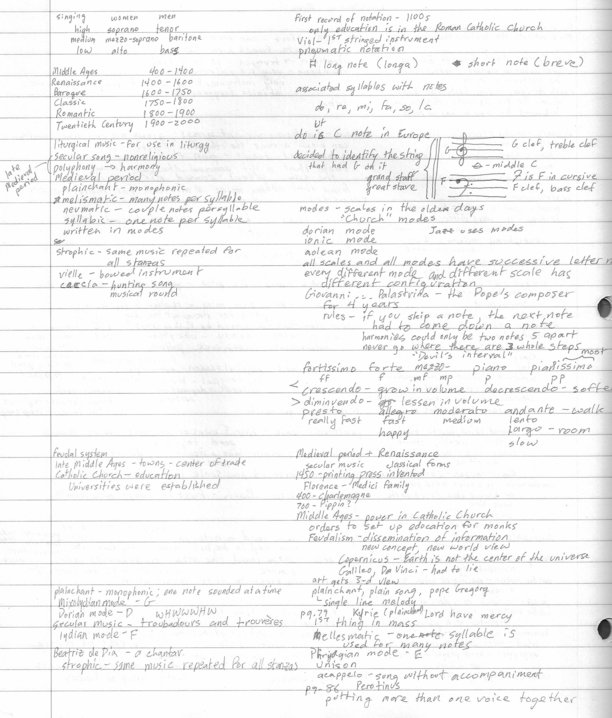 singing women men
high soprano tenor
medium mezzo-soprano baritone
low alto bass
Middle Ages 400-1400
Renaissance 1400-1600
Baroque 1600-1750
Classic 1750-1800
Romantic 1800-1900
Twentieth Century 1900-2000
liturgical music - for use in liturgy
secular song - nonreligious
polyphony -> harmony
late medieval period
Medieval period
plainchant - monophonic
melismatic - many notes per syllable
neumatic - couple notes per syllable
syllabic - one note per syllable
written in modes
strophic - same music repeated for
all stanzas
vielle - bowed instrument
caccia - hunting song
musical round
Feudal system
late Middle Ages - towns - center of trade
Catholic Church - education
Universities were established
plainchant - monophonic; one note sounded at a time
Mixolydian mode - G
Dorian mode - D WHWWWHW
secular music - troubadours and trouvères
lydian mode - F
Beatriz de Dia - a chantar
strophic - same music repeated for all stanzas
First record of notation - 1100s
only education is in the Roman Catholic Church
Viol - 1ST stringed instrument
pneumatic notation
long note (longa) short note (breve)
associated syllables with notes
do, re, mi, fa, so, la
ut
do is C note in Europe
decided to identify the string
that had G on it
grand staff
great stave
G G clef, treble clef
middle C
F is F in cursive
F clef, bass clef
modes - scales in the olden days
"Church" modes
dorian mode Jazz uses modes
ionic mode
aolean mode
all scales and all modes have successive letter n
every different mode and different scale has
different configuration
Giovanni ... Palestrina - the Pope's composer
for 4 years
rules - if you skip a note, the next note
had to come down a note
harmonies could only be two notes 5 apart
never go where there are 3 whole steps
"Devil's interval" most
fortissimo forte mezzo- piano pianissimo
ff f mf mp p pp
< crescendo - grow in volume decrescendo - softe
> diminuendo - lessen in volume
presto allegro moderato andante - walk
really fast fast medium lento
happy largo - room
slow
Medieval period + Renaissance
secular music classical forms
1450 - printing press invented
Florence - Medici family
400 - charlemagne
700 - Pippin?
Middle Ages - power in Catholic Church
orders to set up education for monks
Feudalism - dissemination of information
new concept, new world view
Copernicus - Earth is not the center of the universe
Galileo, Da Vinci - had to lie
art gets 3-d view
plainchant, plain song, pope Gregory
single line melody
pg. 79 Kyrie (plainchant) Lord have mercy
1ST thing in mass
mellesmatic - one syllable is
used for many notes
Phrygian mode - E
unison
acappelo - song without accompaniment
pg. 86 Perotinus
putting more than one voice together